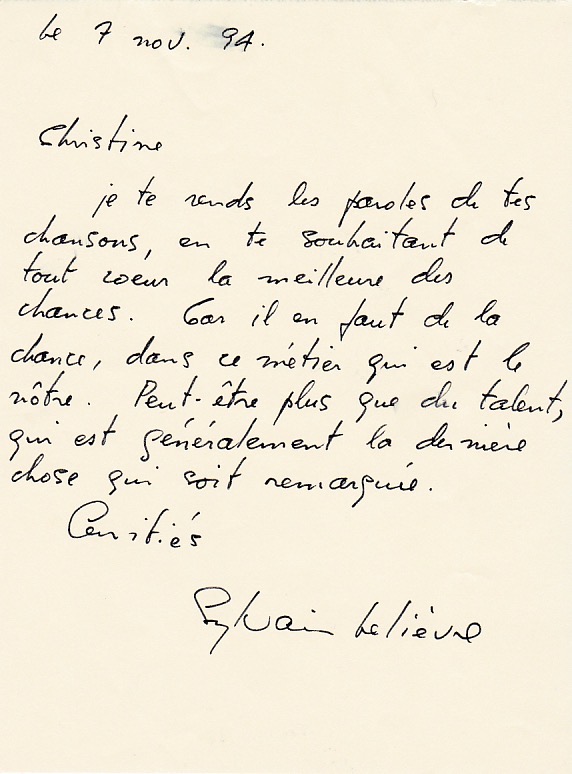 Le 7 nov. 94.
Christine
je te rends les paroles de tes
chansons, en te souhaitant de
tout coeur la meilleure des
chances. Car il en faut de la
chance, dans ce métier qui est le
nôtre. Peut-être plus que du talent,
qui est généralement la dernière
chose qui soit remarquée.
Amitiés
Sylvain Lelièvre